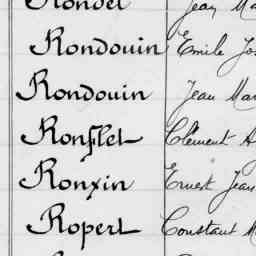 Rondel Jean Ma
Rondouin Emile Jos
Rondouin Jean Mar
Ronflet Clément A
Ronxin Ernest Jean
Ropert Constant M